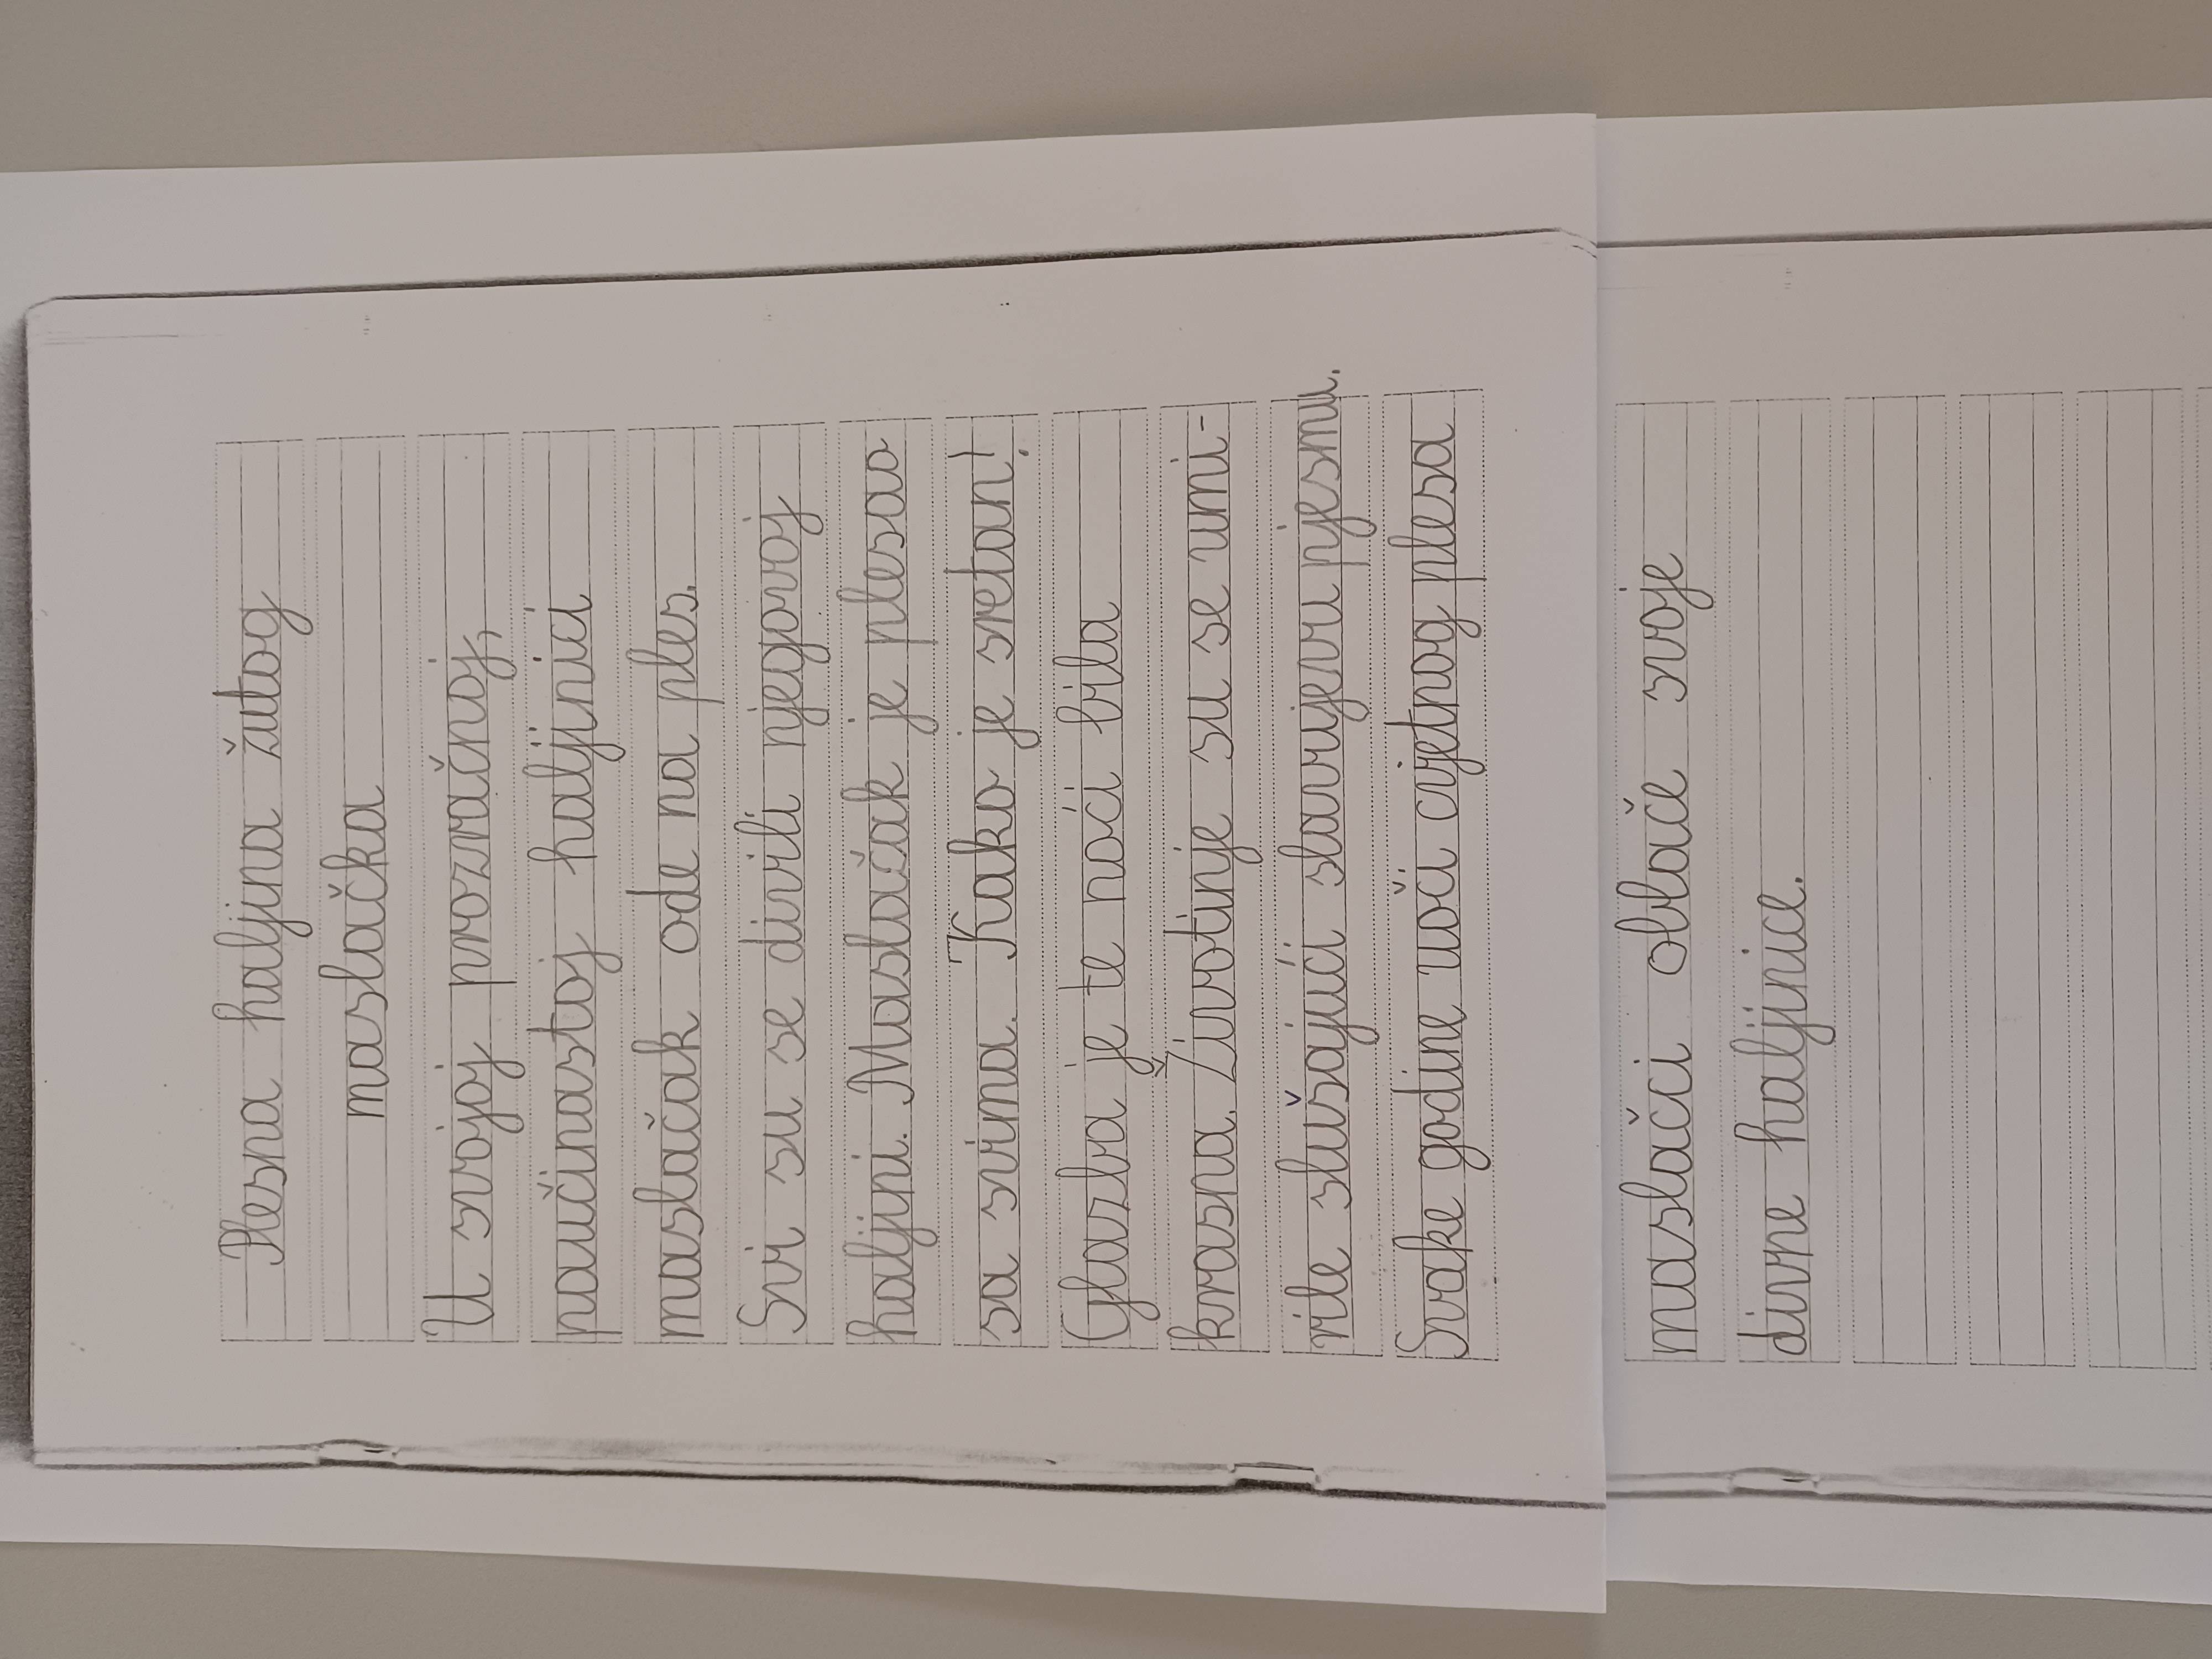 Plesna haljina žutog
maslačka
U svojoj prozračnoj,
paučinastoj haljinici
maslačak ode na ples.
Svi su se divili njegovoj
haljini. Maslačak je plesao
sa svima. Kako je sretan!
Glazba je te noći bila
krasna. Životinje su se umi-
rile slušajući slavujevu pjesmu.
Svake godine uoči cvjetnog plesa
maslačci oblače svoje
divne haljinice.